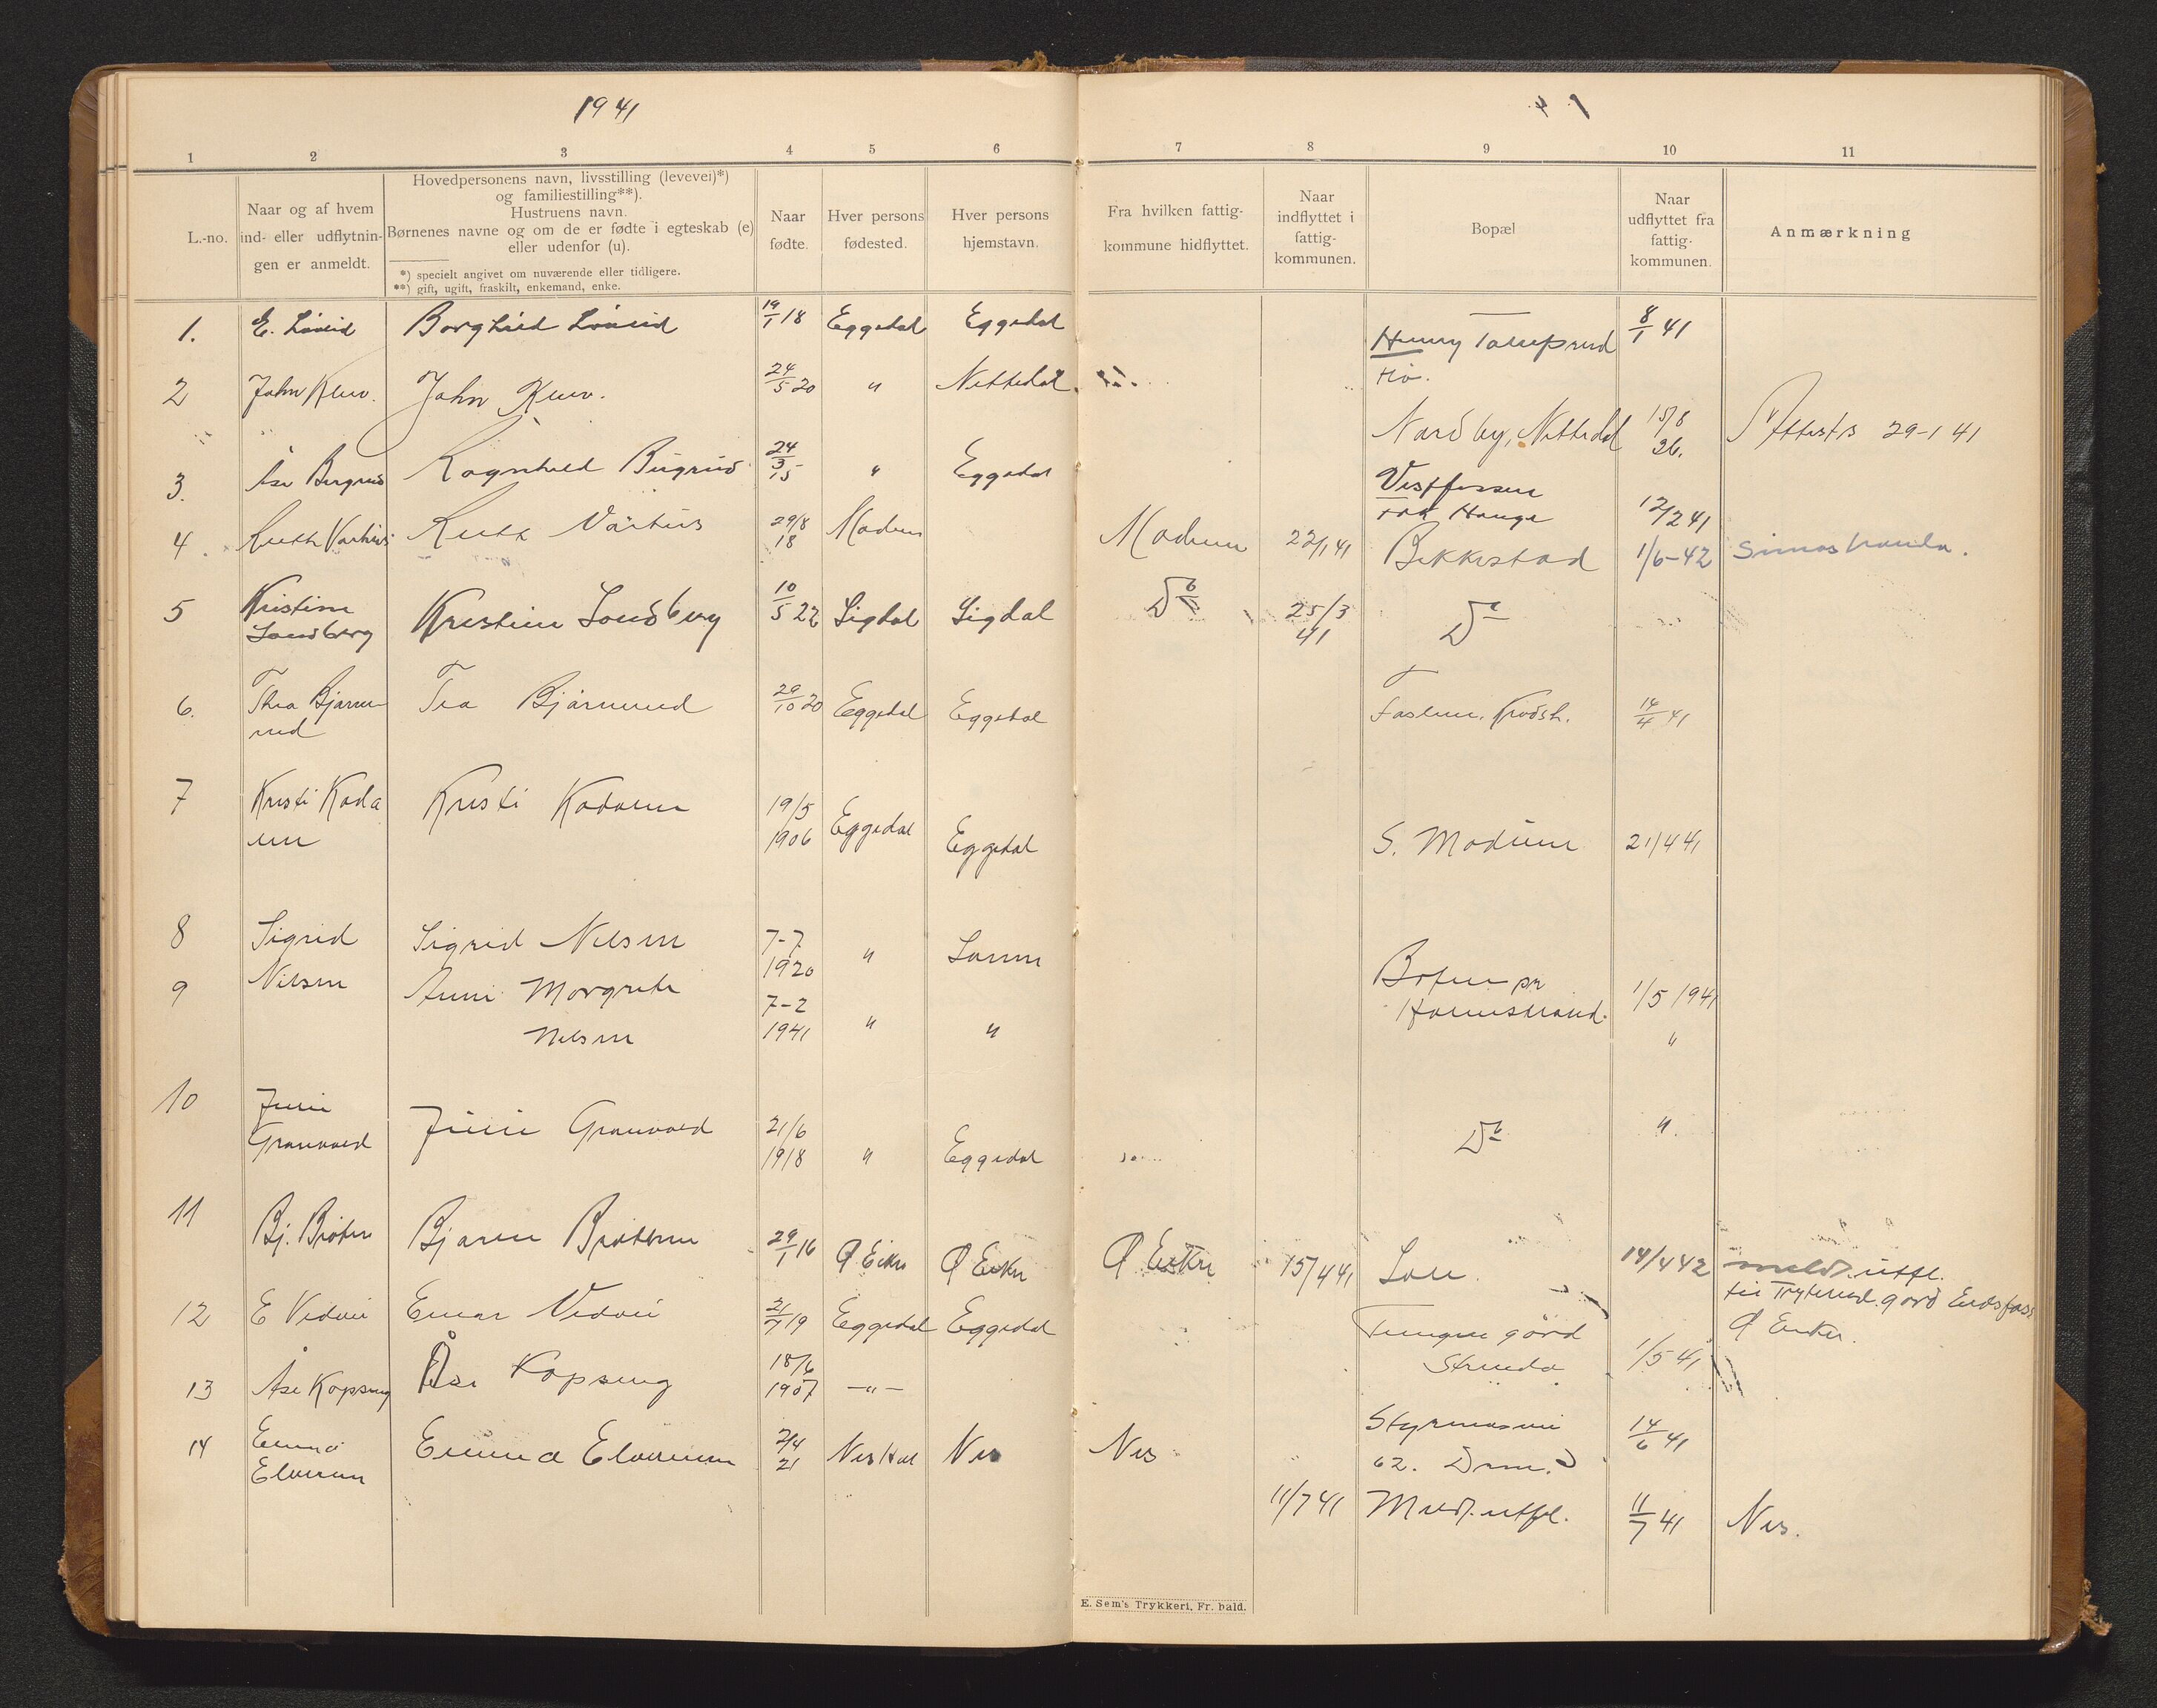 1941
41
1 2 3 4 5 6 7 8 9 10 11
L.-no.
Naar og af hvem
ind- eller udflytnin-
gen er anmeldt.
Hovedpersonens navn, livsstilling (levevei)*)
og familiestilling**).
Hustruens navn.
Børnenes navne og om de er fødte i egteskab (e)
eller udenfor (u).
*) specielt angivet om nuværende eller tidligere.
**) gift, ugift, fraskilt, enkemand, enke.
Naar
fødte.
Hver persons
fødested.
Hver persons
hjemstavn.
Fra hvilken fattig-
kommune hidflyttet.
Naar
indflyttet i
fattig-
kommunen.
Bopæl
Naar
udflyttet fra
fattig-
kommunen.
Anmærkning
1. E. Løvlid Borghild Løvlid 19/1 18 Eggedal Eggedal Henny 8/1 41
Hø.
2 John John 24/5 20 " Nittedal
Nordby, Nittedal 15/8 36. Attest 29-1 41
3. Åse Ragnhild 24/3 15 " Eggedal Vestfossen
Hauge 12/2 41
4 Ruth Ruth 29/8 18 Modum Modum 22/1 41 Bekkestad 1/6-42 Simostranda.
5 Kristine
Sandberg
Kristine Sandberg 10/5 22 Sigdal Sigdal Do 25/3
41
Do
6. Thea Bjørne
rud
Tea Bjørnerud 29/10 20 Eggedal Eggedal Krødsh. 14/4 41
7 Kristi Kada
en
Kristi Kadaen 19/5
1906
Eggedal Eggedal S. Modum 21/4 41
8 Sigrid
Nilsen
Sigrid Nilsen 7-7
1920
" pr
Holmestrand. 1/5 1941
9 Anne Margrete
Nilsen
7-2
1941
" " "
10 Juli
Granvold
Juli Granvold 21/6
1918
" Eggedal Do "
11 Bj. Bråten Bjarne Bråten 29/1 16 Ø Eiker Ø Eiker Ø Eiker 15/4 41 14/4 42 meldt. utfl.
til gård
Ø Eiker.
12 E Vedvei Einar Vedvei 21/7 19 Eggedal Eggedal gård
Strinda 1/5 41
13 Åse Kopseng Åse Kopseng 18/6
1907
—"— Styrmosvei
62. Drm. 14/6 41
14 Emma
Elverum
Emma Elverum 2/4
21
Nes Hal Nes Nes
11/7 41 Meldt. utfl. 11/7 41 Nes.
E. Sem's Trykkeri, Fr. hald.